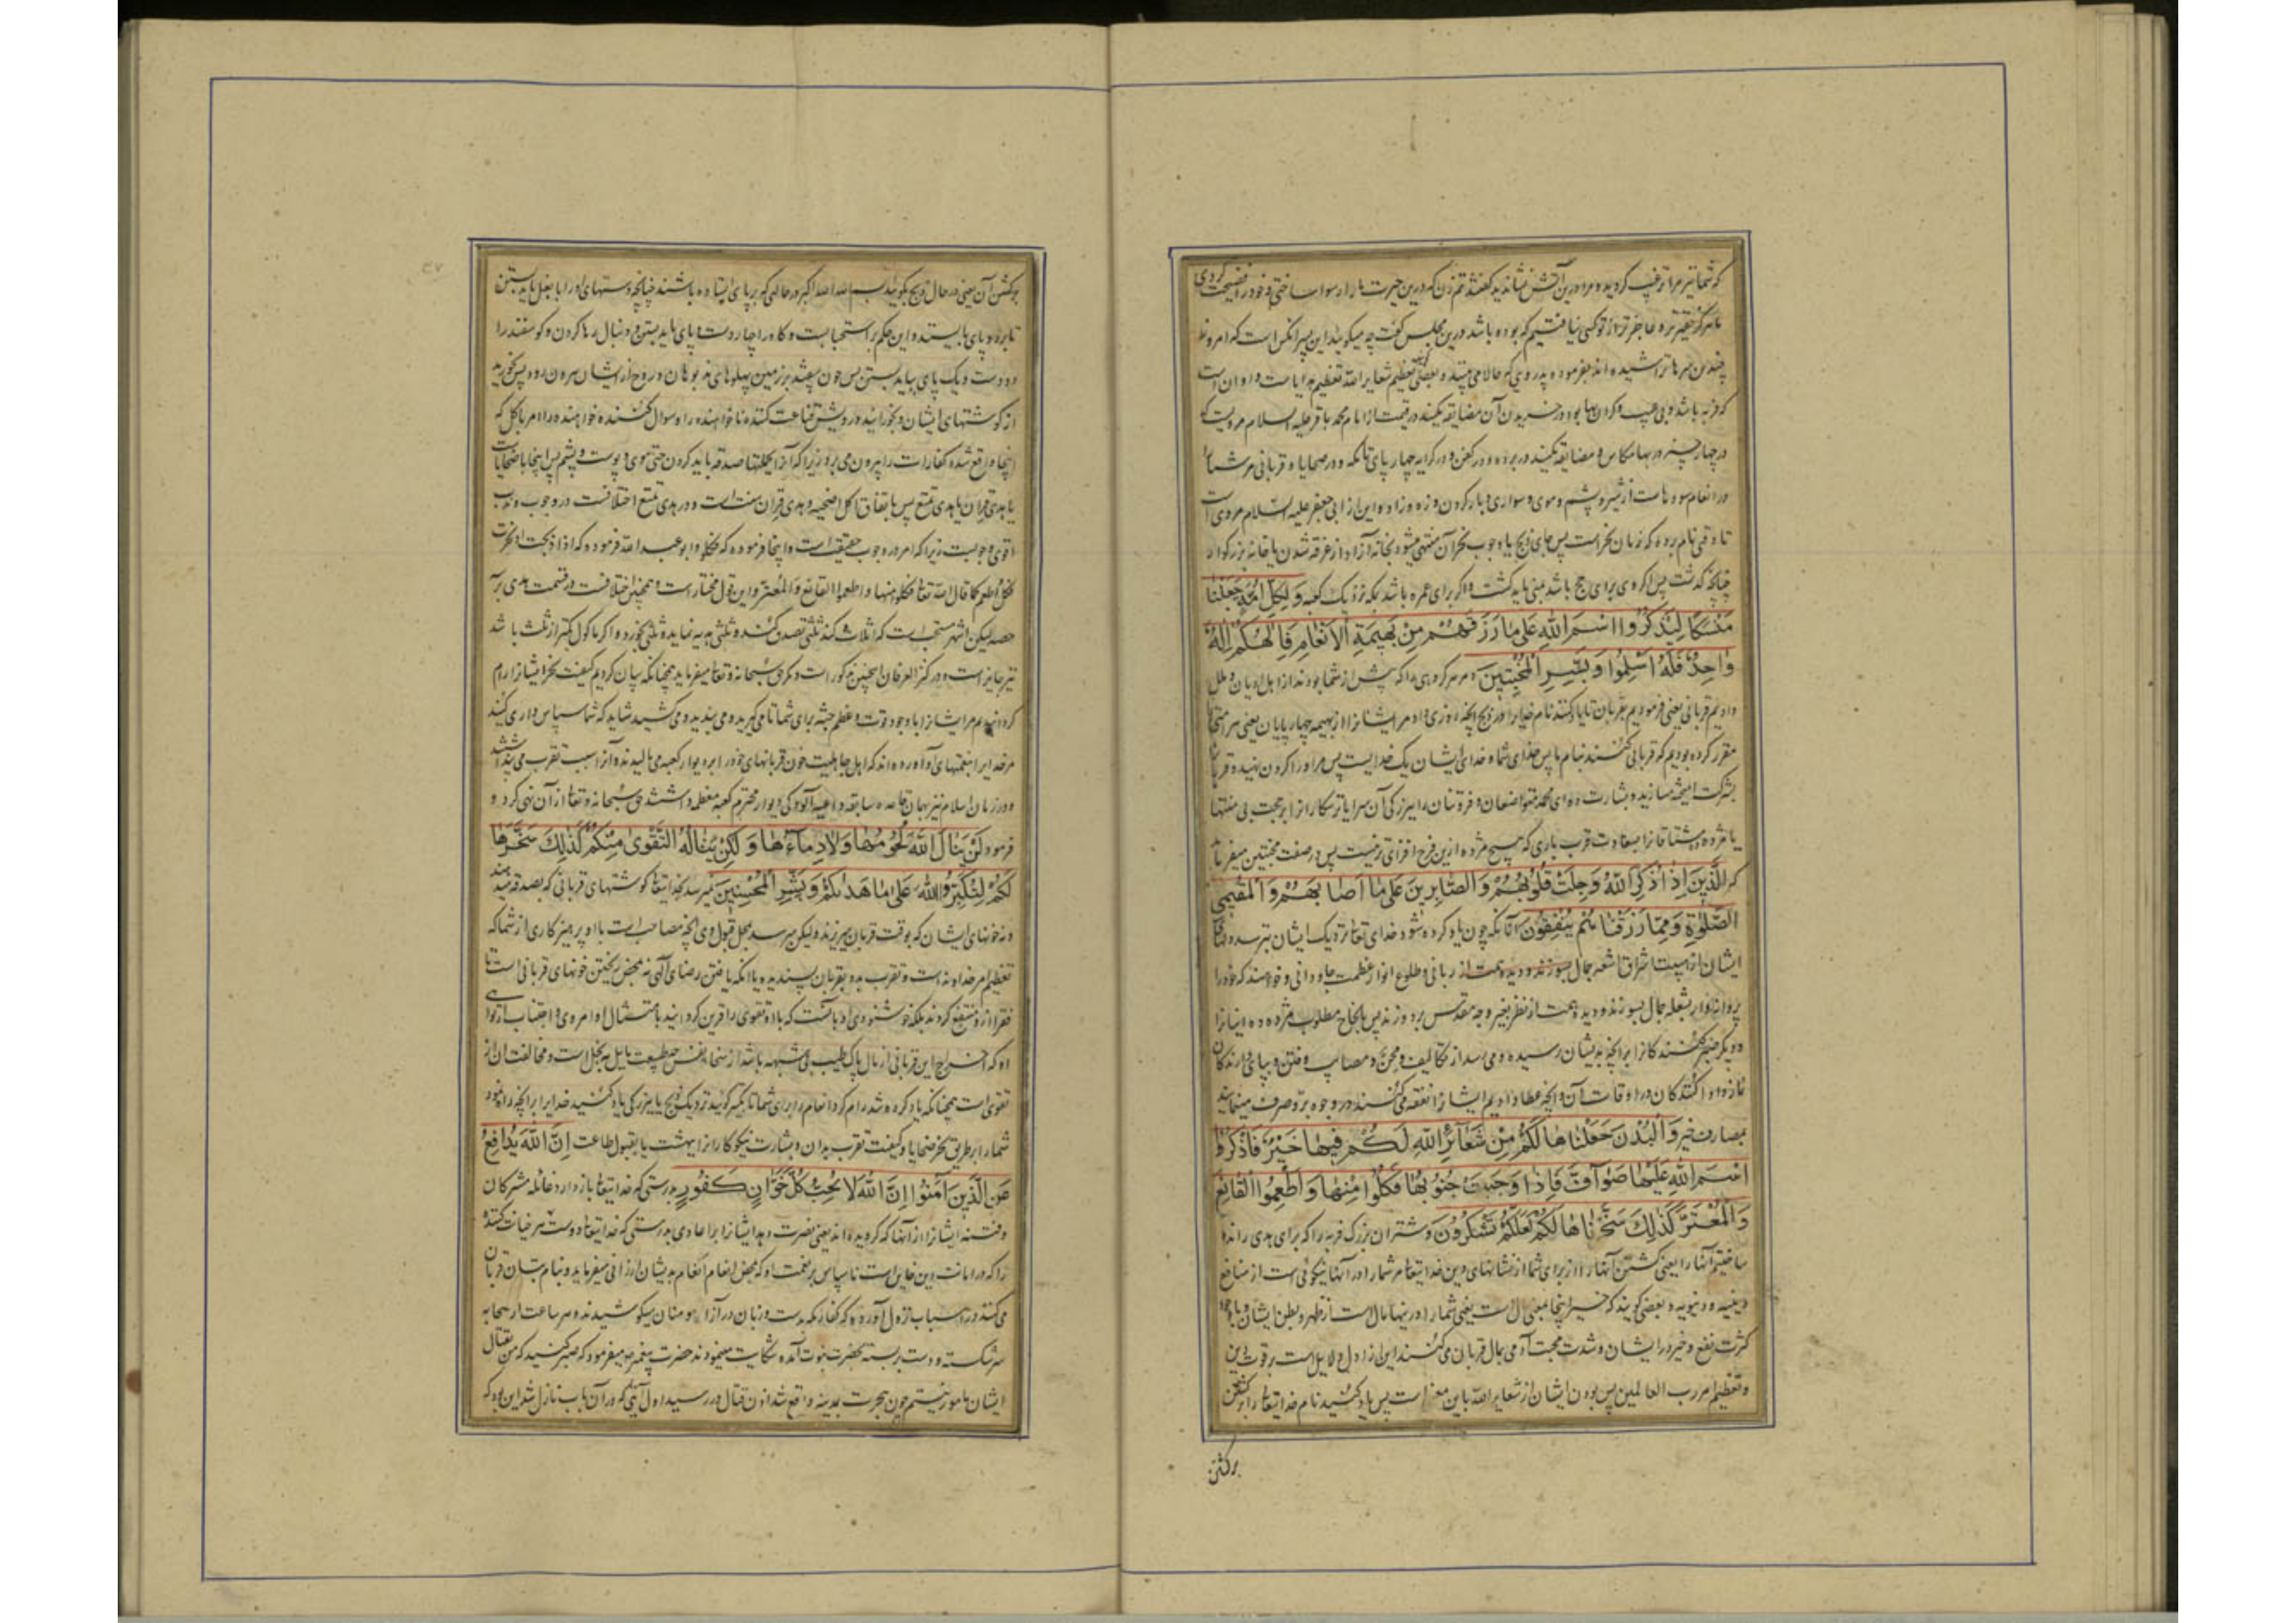 که شما نیز مرا ترغیب کردید و مرا درین آتش نشاندید گفتند تم زن که درین حیرت ما را رسوا ساختی و خود را فضیحت کردی
ما هرگز حقیرتر و عاجزتر از تو کسی نیافتیم که بوده باشد درین مجلس گفت چه میگویید این پسر آنکس است که امروز
چندین سرها تراشیده اند بفرموده پدر وی که حالا می بینید و بعضی گویند تعظیم شعایر الله تعظیم هدایا است و آن است
که فربه باشد و بی عیب و گران بها بود و در خریدن آن مضایقه نکنند در قیمت از امام محمد باقر علیه السلام مرویست که
در چهار چیز در بها مکاس و مضایقه نکنید در برده و در کفن و در کرایه چهارپای تا مکه و در ضحایا و قربانی مر شما را
در انعام سودهاست از شیر و پشم و موی و سواری و بار کردن و زه و زاد و این از ابی جعفر علیه السلام مروی است
تا وقتی نام برده که زمان نحر است پس جای ذبح یا وجوب نحر آن منتهی میشود بخانه آزاد از غرقه شدن یا خانه بزرگوار
چنانچه گذشت پس اگر هدی برای حج باشد بمنی باید کشت و اگر برای عمره باشد بمکه نزدیک کعبه وَلِكُلِّ أُمَّةٍ جَعَلْنَا
مَنْسَكًا لِيَذْكُرُوا اسْمَ اللهِ عَلى مَا رَزَقَهُمْ مِنْ بَهِيمَةِ الْأَنْعَامِ فَإِلهُكُمْ إِلهٌ
وَاحِدٌ فَلَهُ أَسْلِمُوا وَبَشِّرِ الْمُخْبِتِينَ و مر هر گروهی را که پیش از شما بودند از اهل ادیان و ملل
دادیم قربانی یعنی فرمودیم بقربان تا یاد کنند نام خدای را در ذبح آنچه روزی داد مر ایشانرا از بهیمه چهارپایان یعنی هر امتی را
مقرر کرده بودیم که قربانی کنند بنام ما پس خدای شما و خدای ایشان یک خدایست پس مر او را گردن نهید و قربان
بشرکت آمیخته مسازید و بشارت ده ای محمد متواضعان و فروتنان را ببزرگی آن سرای یا ترسکاران را برحمت بی منتها
یا مژده ده مشتاقان را بسعادت قرب باری که هیچ مژده ازین فرح افزای تر نیست پس در صفت مخبتین میفرماید
که الَّذِينَ إِذَا ذُكِرَ اللهُ وَجِلَتْ قُلُوبُهُمْ وَالصَّابِرِينَ عَلى مَا أَصَابَهُمْ وَالْمُقِيمِي
الصَّلٰوةِ وَمِمَّا رَزَقْنَاهُمْ يُنْفِقُونَ آنانکه چون یاد کرده شود خدای تعالی نزدیک ایشان بترسد دلهای
ایشان از هیبت اشراق اشعه جمال ربانی و طلوع انوار عظمت جاودانی و خواهند که خود را
پروانه وار بشعله جمال بسوزند و دیده همت از نظر بغیر وجه مقدس بردوزند پس بانجاح مطلوب مژده ده اینانرا
و دیگر صبر کنندگانرا بر آنچه بدیشان رسیده و می رسد از تکالیف و محن و مصایب و فتن و بپای دارندگان
نماز و ادا کنندگان در اوقات آن و از آنچه عطا دادیم ایشانرا نفقه می کنند در وجوه بر و صرف مینمایند
بمصارف خیر وَالْبُدْنَ جَعَلْنَاهَا لَكُمْ مِنْ شَعَائِرِ اللهِ لَكُمْ فِيهَا خَيْرٌ فَاذْكُرُوا
اسْمَ اللهِ عَلَيْهَا صَوَافَّ فَإِذَا وَجَبَتْ جُنُوبُهَا فَكُلُوا مِنْهَا وَأَطْعِمُوا الْقَانِعَ
وَالْمُعْتَرَّ كَذٰلِكَ سَخَّرْنَاهَا لَكُمْ لَعَلَّكُمْ تَشْكُرُونَ و شتران بزرگ فربه را که برای هدی رانده
ساختیم آنها را یعنی کشتن آنها را از برای شما از نشانهای دین خدایتعالی مر شما را در آنها نیکوئی ست از منافع
دینیه و دنیویه و بعضی گویند که خیر اینجا بمعنی مال است یعنی شما را در اینها مال است از ظهر و بطن ایشان و با وجود
کثرت نفع و خیر در ایشان و شدت محبت آدمی بمال قربان می کنند این از ادل دلایل است بر قوت دین
و تعظیم امر رب العالمین پس بودن ایشان از شعایر الله باین معنی است پس یاد کنید نام خدایتعالی را بر کشتن
بر کشتن
بر کشتن آن یعنی در حال ذبح بگویید بسم الله الله اکبر در حالتی که بر پای ایستاده باشند چنانچه دستهای او را با بغل باید بستن
تا بر دو پای بایستد و این حکم بر استحبابست و گاو را چار دست و پای باید بستن و دنبال رها کردن و گوسفند را
دو دست و یک پای بباید بستن پس چون بیفتد بر زمین پهلوهای بدنها و روح از ایشان بیرون رود پس بخورید
از گوشتهای ایشان و بخورانید درویش قناعت کننده ناخواهنده را و سوال کننده خواهنده را امر باکل که
اینجا واقع شده کفارات را بیرون می برد زیرا که آنرا بکلیتها صدقه باید کردن حتی موی و پوست و پشم پس اینجا یا ضحایاست
یا هدی قران یا هدی تمتع پس باتفاق اکل اضحیه و هدی قران سنت است و در هدی تمتع اختلافست در وجوب و ندب
اقوی وجوبست زیرا که امر در وجوب حقیقت است و اینجا فرموده که فکلوا و ابو عبد الله فرموده که اذا ذبحت او نحرت
فکل و اطعم کما قال الله تعالی فکلوا منها و اطعموا القانع و المعتر و این قول مختار است و همچنین اختلافست در قسمت هدی بر
حصه لیکن اشهر مستحب است که اثلاث کند ثلثی تصدق کند و ثلثی هدیه نماید و ثلثی بخورد و اگر ماکول کمتر از ثلث باشد
نیز جایز است و در کنز العرفان همچنین مذکور است و دیگر حق سبحانه و تعالی میفرماید همچنانکه بیان کردیم کیفیت نحر ایشانرا رام
گردانیدیم مر ایشانرا با وجود قوت و عظم جثه برای شما تا می گیرید و می بندید و می کشید شاید که شما سپاس داری کنید
مر خدایرا بنعمتهای او آورده اند که اهل جاهلیت خون قربانهای خود را بر دیوار کعبه می مالیدند و آنرا سبب تقرب می پنداشتند
و در زمان اسلام نیز بهمان قاعده سابقه داعیه آلودگی دیوار محترم کعبه معظمه داشتند حق سبحانه و تعالی از آن نهی کرد و
فرمود لَنْ يَنَالَ اللهَ لُحُومُهَا وَلَا دِمَاءُهَا وَلٰكِنْ يَنَالُهُ التَّقْوٰى مِنْكُمْ كَذٰلِكَ سَخَّرَهَا
لَكُمْ لِتُكَبِّرُوا اللهَ عَلى مَا هَدٰيكُمْ وَبَشِّرِ الْمُحْسِنِينَ نمیرسد بخدایتعالی گوشتهای قربانی که بصدقه میدهند
و نه خونهای ایشان که بوقت قربان میریزند ولیکن میرسد بمحل قبول وی آنچه مصاحب است با او پرهیزکاری از شما که
تعظیم امر خداوند است و تقرب بدو بقربان پسندیده یا آنکه یافتن رضای الهی نه بمحض ریختن خونهای قربانی است تا
فقرا ازو منتفع گردند بلکه خوشنودی او بآنست که با او تقوی را قرین گردانید بامتثال اوامر وی و اجتناب از نواهی
او که اخراج این قربانی از مال پاک طیب بی شبهه باشد از سخای نفس چه طبیعت مایل به بخل است و مخالفت آن از
تقوی است همچنانکه یاد کرده شد رام کرد انعام را برای شما تا تکبیر گویید نزدیک ذبح یا ببزرگی یاد کنید خدایرا بر آنچه راه نمود
شما را بر طریق نحر ضحایا و کیفیت تقرب بدان و بشارت ده نیکوکارانرا ببهشت یا بقبول طاعت إِنَّ اللهَ يُدَافِعُ
عَنِ الَّذِينَ آمَنُوا إِنَّ اللهَ لَا يُحِبُّ كُلَّ خَوَّانٍ كَفُورٍ بدرستی که خدایتعالی باز دارد غائله مشرکان
و فتنه ایشانرا از آنها که گرویده اند یعنی نصرت دهد ایشانرا بر اعادی بدرستی که خدایتعالی دوست ندارد هر خیانت کننده
را که در امانت دین خاین است ناسپاس بر نعمت او که بمحض انعام انعام بدیشان ارزانی میفرماید و بنام بتان قربان
می کنند در اسباب نزول آورده که کفار مکه بدست و زبان در آزار مومنان میکوشیدند و هر ساعت از صحابه
سر شکسته و دست بر بسته بحضرت نبوت آمده شکایت مینمودند حضرت پیغمبر ص میفرمود که صبر کنید که من بقتال
ایشان مامور نیستم چون هجرت بمدینه واقع شد اذن قتال در رسید اول آیتی که در آن باب نازل شد این بود که